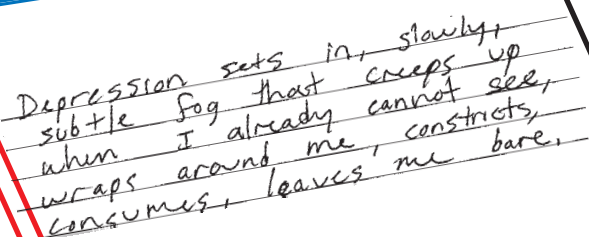 Depression sets in, slowly,
subtle fog that creeps up
when I already cannot see,
wraps around me, constricts,
consumes, leaves me bare.